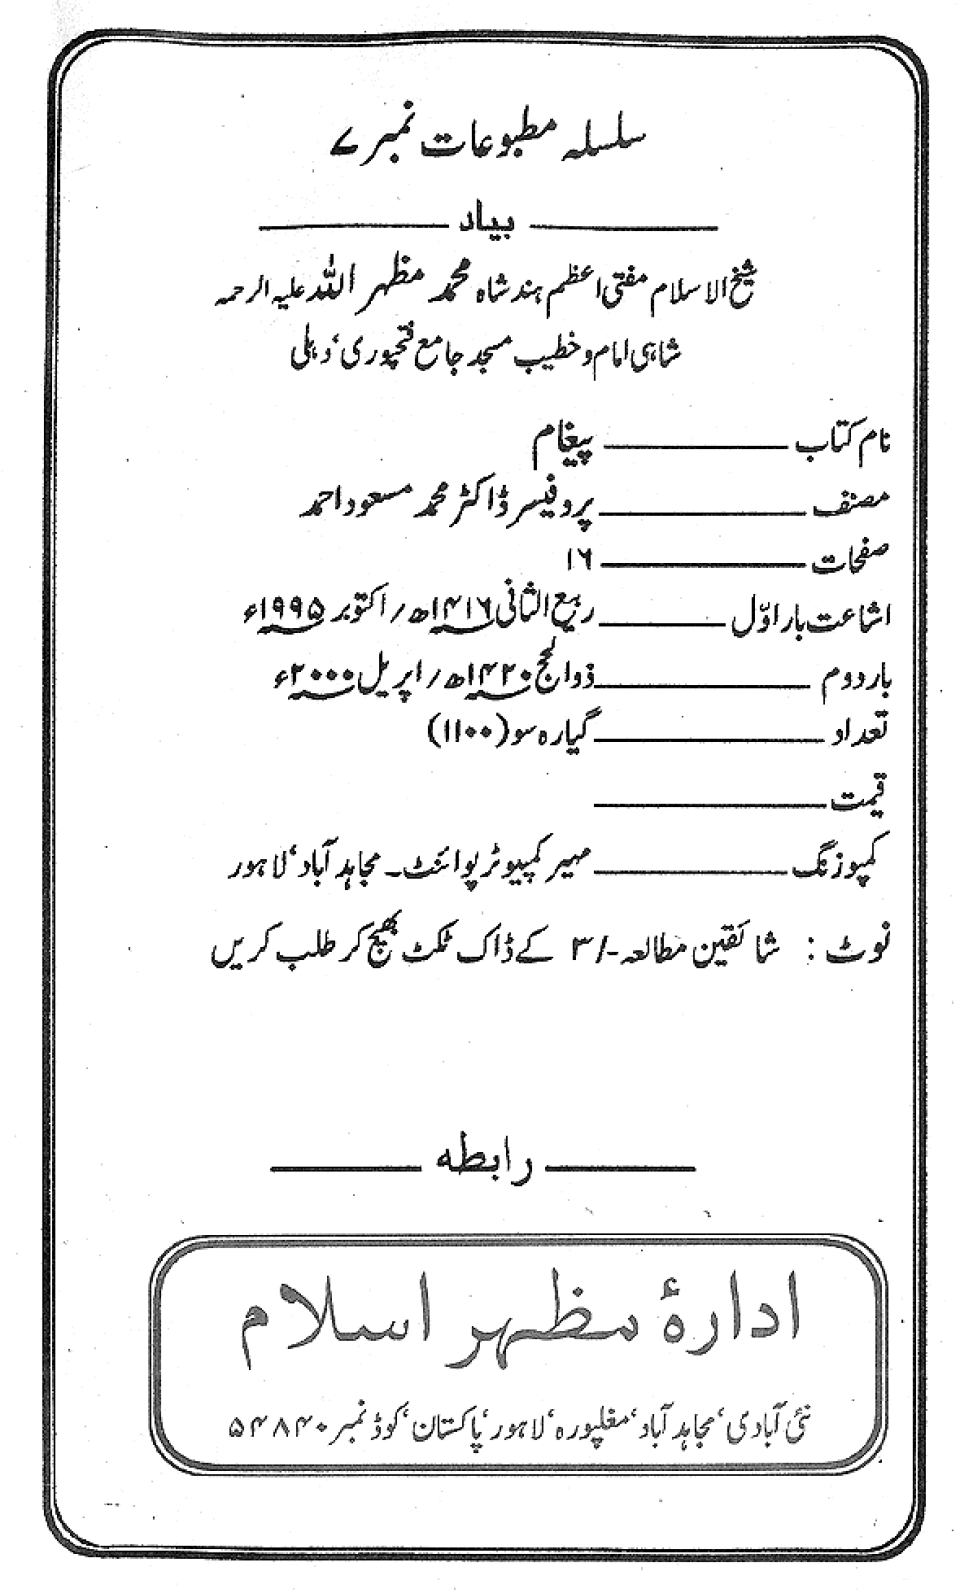 سلسلہ مطبوعات نمبر ۷
بیاد
شیخ الاسلام مفتی اعظم ہند شاہ محمد مظہر اللہ علیہ الرحمہ
شاہی امام و خطیب مسجد جامع فتحپوری، دہلی
نام کتاب ــــــــ پیغام
مصنف ــــــــ پروفیسر ڈاکٹر محمد مسعود احمد
صفحات ــــــــ ۱۶
اشاعت بار اوّل ــــــــ ربیع الثانی ۱۴۱۶ھ / اکتوبر ۱۹۹۵ء
بار دوم ــــــــ ذوالحج ۱۴۲۰ھ / اپریل ۲۰۰۰ء
تعداد ــــــــ گیارہ سو (۱۱۰۰)
قیمت ــــــــ
کمپوزنگ ــــــــ میر کمپیوٹر پوائنٹ۔ مجاہد آباد، لاہور
نوٹ : شائقین مطالعہ -/۳ کے ڈاک ٹکٹ بھیج کر طلب کریں
رابطہ
ادارۂ مظہر اسلام
نئی آبادی، مجاہد آباد، مغلپورہ، لاہور، پاکستان، کوڈ نمبر ۵۴۸۴۰